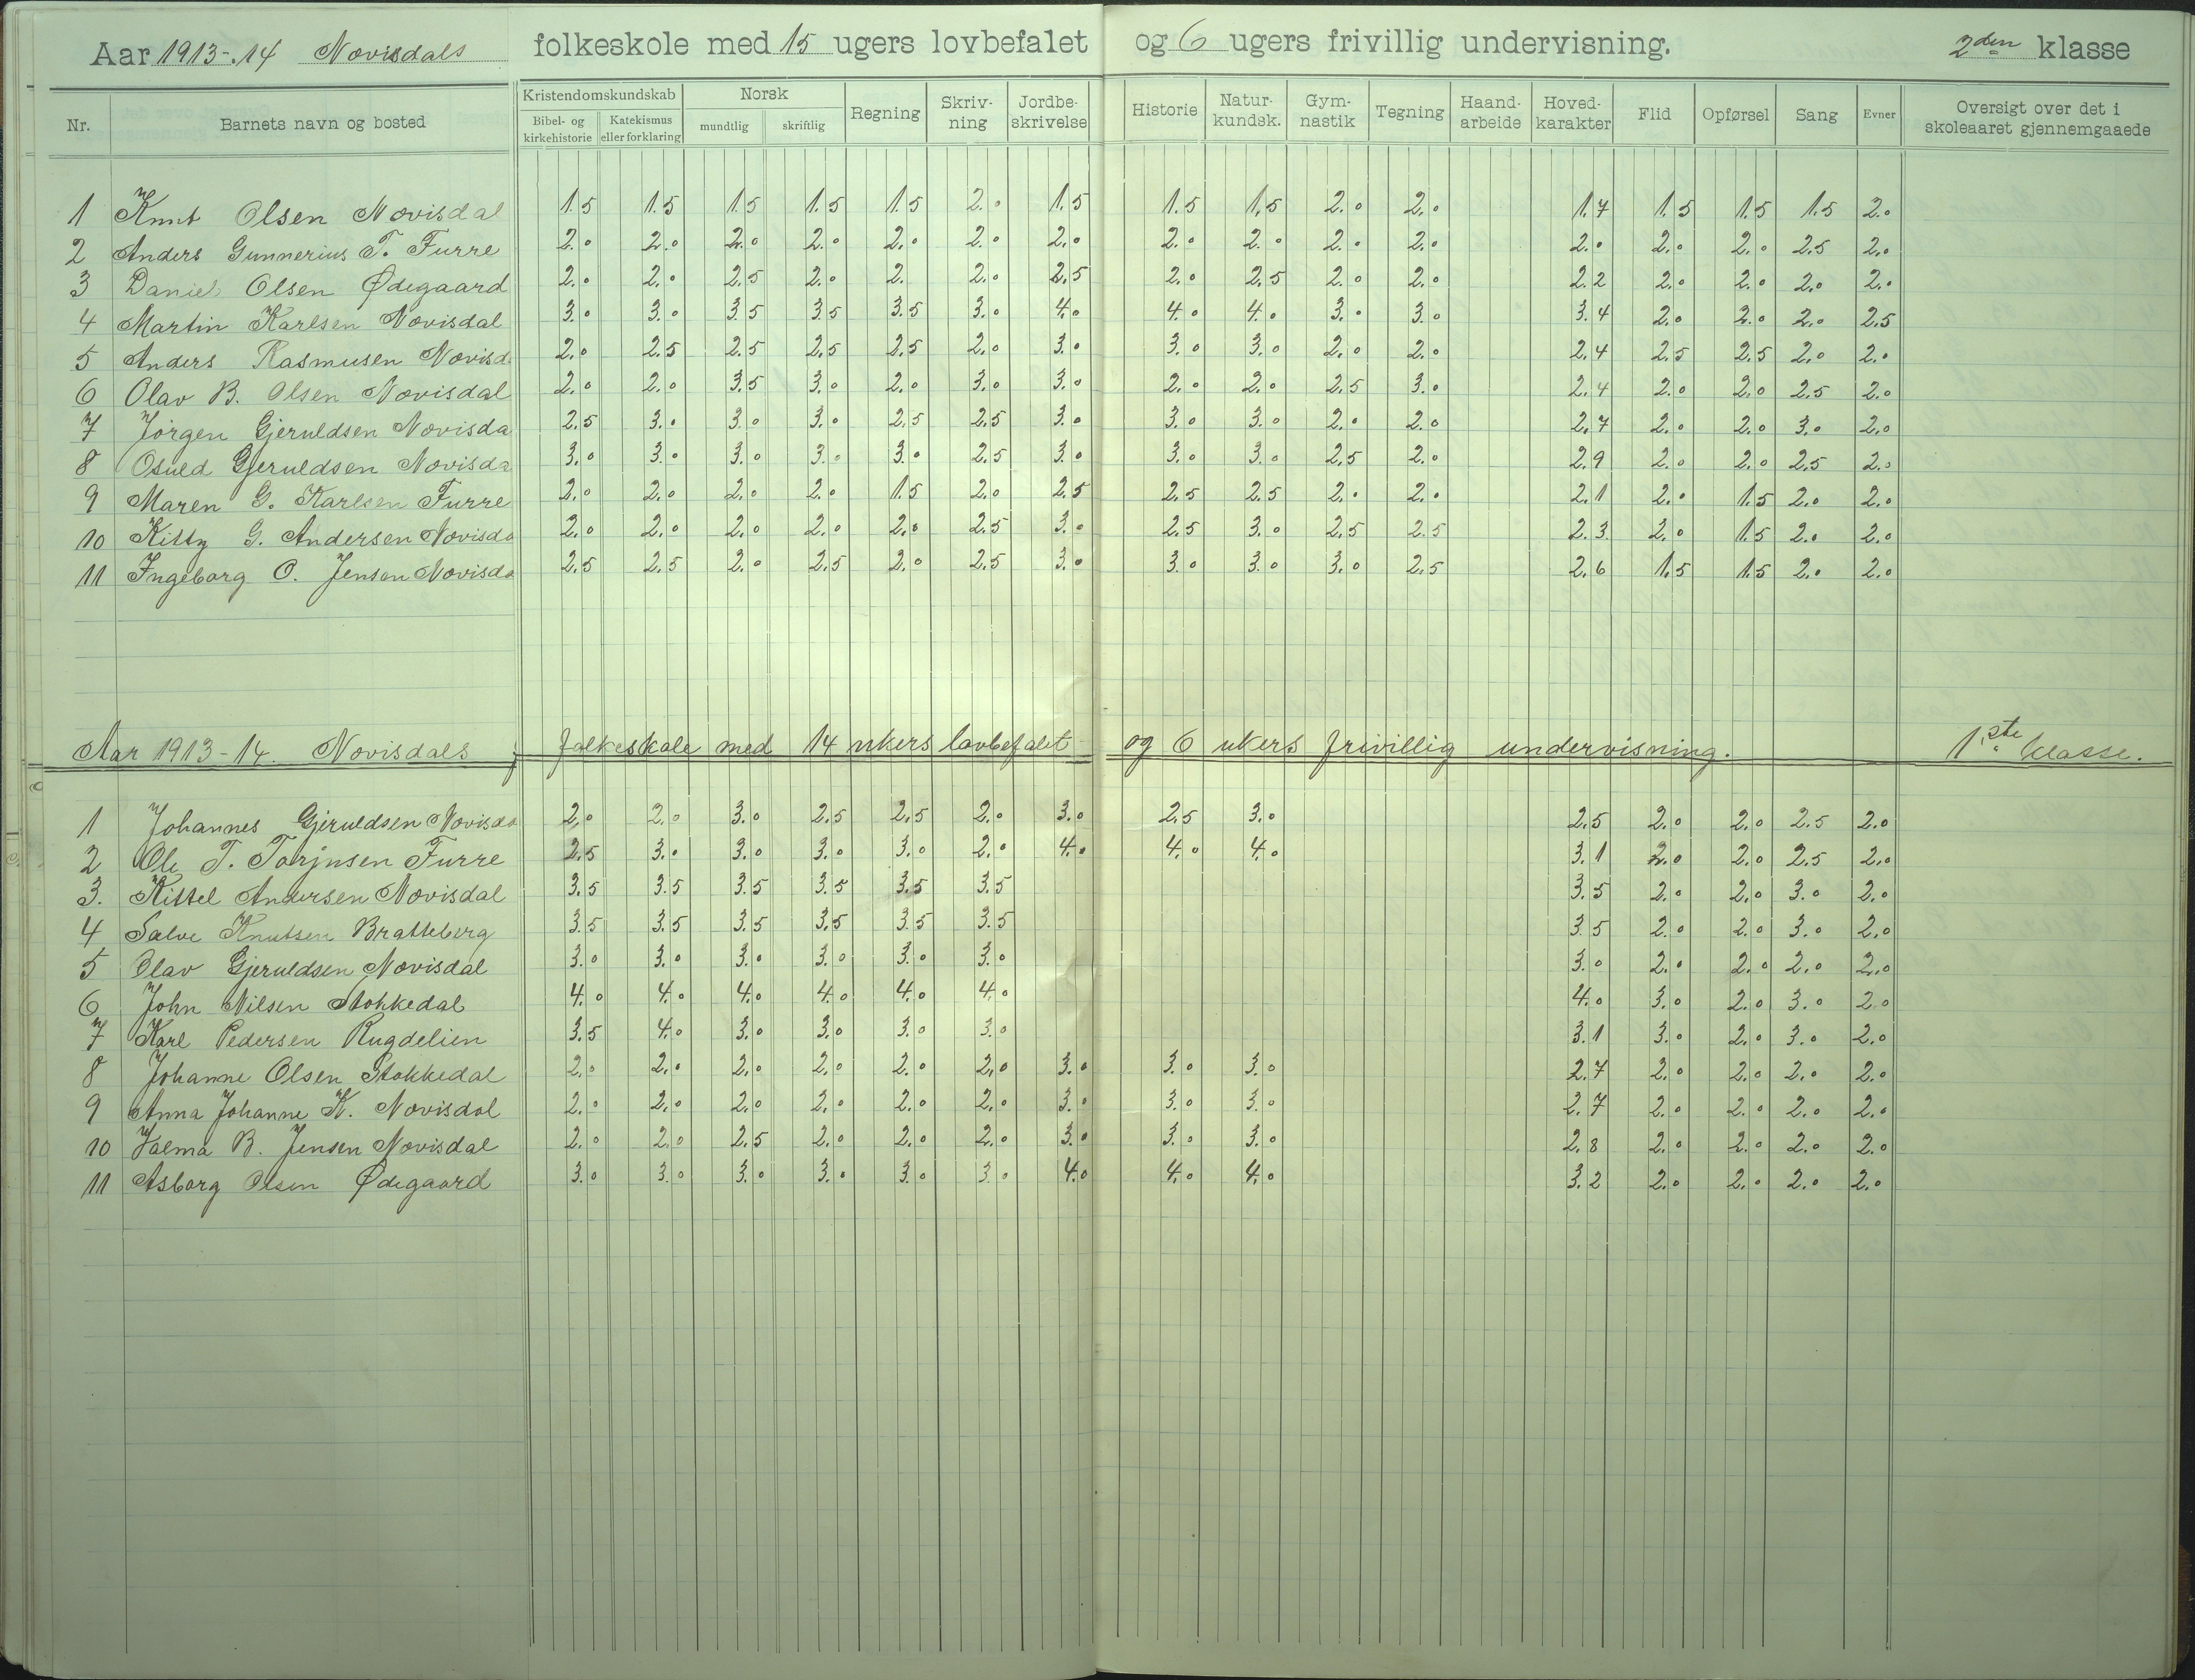 Aar 1913-.14 Novisdals folkeskole med 15 ugers lovbefalet og 6 ugers frivillig undervisning. 2den klasse
Nr. Barnets navn og bosted Kristendomskundskab Bibel- og kirkehistorie Katekismus eller forklaring Norsk mundtlig skriftlig Regning Skriv-ning Jordbe-skrivelse Historie Natur-kundsk. Gym-nastik Tegning Haand-arbeide Hoved-karakter Flid Opførsel Sang Evner Oversigt over det i skoleaaret gjennemgaaede
1 Knut Olsen Novisdal 1.5 1.5 1.5 1.5 1.5 2.0 1.5 1.5 1.5 2.0 2.0 1.7 1.5 1.5 1.5 2.0
2 Anders Gunnerius T. Furre 2.0 2.0 2.0 2.0 2.0 2.0 2.0 2.0 2.0 2.0 2.0 2.0 2.0 2.0 2.5 2.0
3 Daniel Olsen Ødegaard 2.0 2.0 2.5 2.0 2. 2.0 2.5 2.0 2.5 2.0 2.0 2.2 2.0 2.0 2.0 2.0
4 Martin Karlsen Novisdal 3.0 3.0 3.5 3.5 3.5 3.0 4.0 4.0 4.0 3.0 3.0 3.4 2.0 2.0 2.0 2.5
5 Anders Rasmusen Novisd. 2.0 2.5 2.5 2.5 2.5 2.0 3.0 3.0 3.0 2.0 2.0 2.4 2.5 2.5 2.0 2.0
6 Olav B. Olsen Novisdal 2.0 2.0 3.5 3.0 2.0 3.0 3.0 2.0 2.0 2.5 3.0 2.4 2.0 2.0 2.5 2.0
7 Jörgen Gjeruldsen Novisda 2.5 3.0 3.0 3.0 2.5 2.5 3.0 3.0 3.0 2.0 2.0 2.7 2.0 2.0 3.0 2.0
8 Osuld Gjeruldsen Novisda 3.0 3.0 3.0 3.0 3.0 2.5 3.0 3.0 3.0 2.5 2.0 2.9 2.0 2.0 2.5 2.0
9 Maren G. Karlsen Furre 2.0 2.0 2.0 2.0 1.5 2.0 2.5 2.5 2.5 2.0 2.0 2.1 2.0 1.5 2.0 2.0
10 Kitty G. Andersen Novisda 2.0 2.0 2.0 2.0 2.0 2.5 3.0 2.5 3.0 2.5 2.5 2.3 2.0 1.5 2.0 2.0
11 Ingeborg O. Jensen Novisda 2.5 2.5 2.0 2.5 2.0 2.5 3.0 3.0 3.0 3.0 2.5 2.6 1.5 1.5 2.0 2.0
Aar 1913-14. Novisdals folkeskole med 14 ukers lovbefalet og 6 ukers frivillig undervisning. 1ste klasse.
1 Johannes Gjeruldsen Novisda 2.0 2.0 3.0 2.5 2.5 2.0 3.0 2.5 3.0 2.5 2.0 2.0 2.5 2.0
2 Ole T. Torjusen Furre 2.5 3.0 3.0 3.0 3.0 2.0 4.0 4.0 4.0 3.1 2.0 2.0 2.5 2.0
3. Kittel Andersen Novisdal 3.5 3.5 3.5 3.5 3.5 3.5 3.5 2.0 2.0 3.0 2.0
4 Salve Knutsen Bratteberg 3.5 3.5 3.5 3.5 3.5 3.5 3.5 2.0 2.0 3.0 2.0
5 Olav Gjeruldsen Novisdal 3.0 3.0 3.0 3.0 3.0 3.0 3.0 2.0 2.0 2.0 2.0
6 John Nilsen Stokkedal 4.0 4.0 4.0 4.0 4.0 4.0 4.0 3.0 2.0 3.0 2.0
7 Karl Pedersen Rugdelien 3.5 4.0 3.0 3.0 3.0 3.0 3.1 3.0 2.0 3.0 2.0
8 Johanne Olsen Stokkedal 2.0 2.0 2.0 2.0 2.0 2.0 3.0 3.0 3.0 2.7 2.0 2.0 2.0 2.0
9 Anna Johanne K. Novisdal 2.0 2.0 2.0 2.0 2.0 2.0 3.0 3.0 3.0 2.7 2.0 2.0 2.0 2.0
10 Valma B. Jensen Novisdal 2.0 2.0 2.5 2.0 2.0 2.0 3.0 3.0 3.0 2.8 2.0 2.0 2.0 2.0
11 Asborg Olsen Ødegaard 3.0 3.0 3.0 3.0 3.0 3.0 4.0 4.0 4.0 3.2 2.0 2.0 2.0 2.0